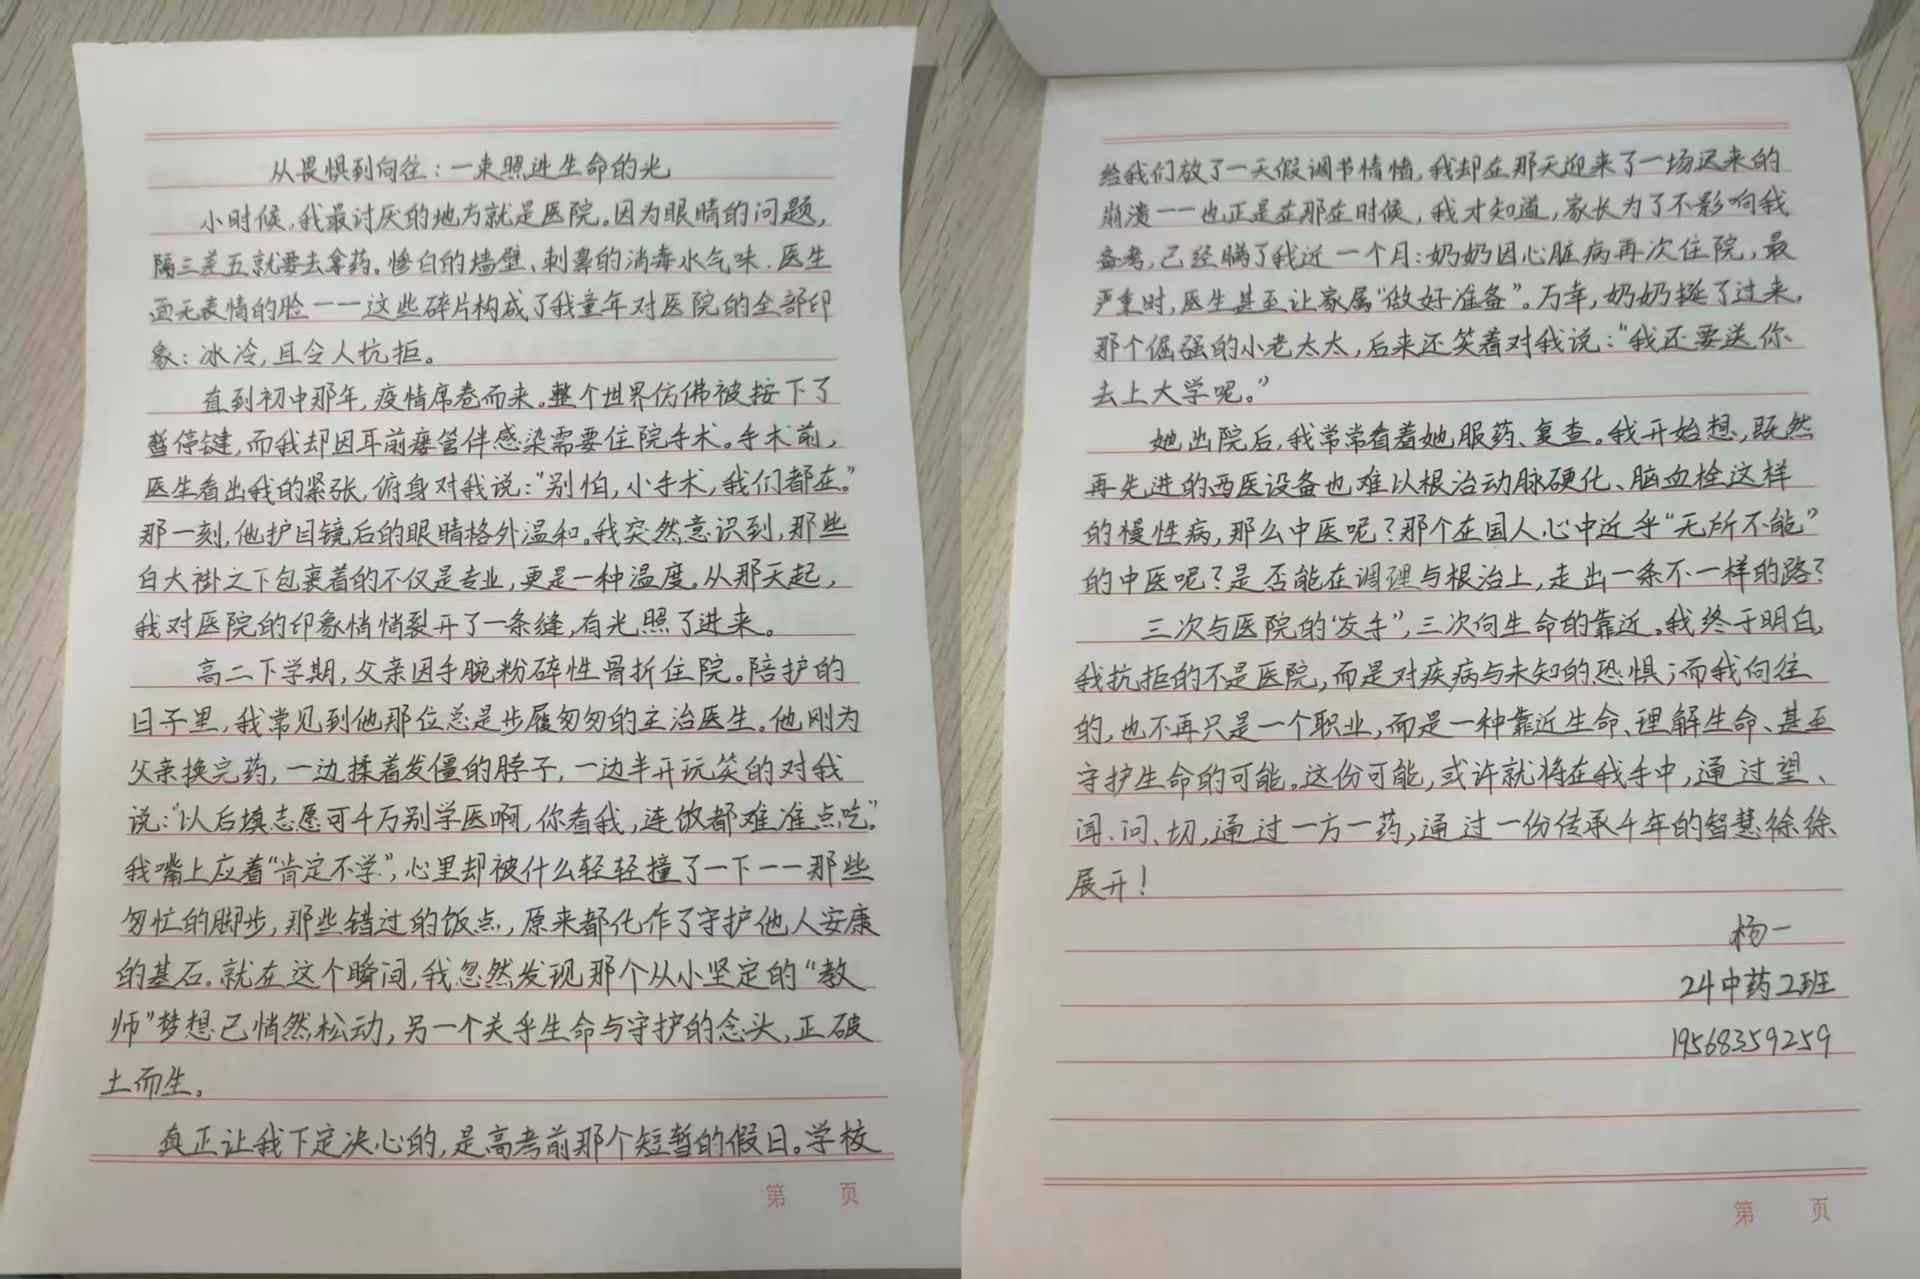 从畏惧到向往：一束照进生命的光
小时候，我最讨厌的地方就是医院。因为眼睛的问题，
隔三差五就要去拿药。惨白的墙壁、刺鼻的消毒水气味、医生
面无表情的脸——这些碎片构成了我童年对医院的全部印
象：冰冷，且令人抗拒。
直到初中那年，疫情席卷而来。整个世界仿佛被按下了
暂停键，而我却因耳前瘘管伴感染需要住院手术。手术前，
医生看出我的紧张，俯身对我说：“别怕，小手术，我们都在。”
那一刻，他护目镜后的眼睛格外温和。我突然意识到，那些
白大褂之下包裹着的不仅是专业，更是一种温度。从那天起，
我对医院的印象悄悄裂开了一条缝，有光照了进来。
高二下学期，父亲因手腕粉碎性骨折住院。陪护的
日子里，我常见到他那位总是步履匆匆的主治医生。他刚为
父亲换完药，一边揉着发僵的脖子，一边半开玩笑的对我
说：“以后填志愿可千万别学医啊，你看我，连饭都难准点吃。”
我嘴上应着“肯定不学”，心里却被什么轻轻撞了一下——那些
匆忙的脚步，那些错过的饭点，原来都化作了守护他人安康
的基石。就在这个瞬间，我忽然发现那个从小坚定的“教
师”梦想已悄然松动，另一个关乎生命与守护的念头，正破
土而生。
真正让我下定决心的，是高考前那个短暂的假日。学校
第 页
给我们放了一天假调节情绪，我却在那天迎来了一场迟来的
崩溃——也正是在那在时候，我才知道，家长为了不影响我
备考，已经瞒了我近一个月：奶奶因心脏病再次住院，最
严重时，医生甚至让家属“做好准备”。万幸，奶奶挺了过来，
那个倔强的小老太太，后来还笑着对我说：“我还要送你
去上大学呢。”
她出院后，我常常看着她服药、复查。我开始想，既然
再先进的西医设备也难以根治动脉硬化、脑血栓这样
的慢性病，那么中医呢？那个在国人心中近乎“无所不能”
的中医呢？是否能在调理与根治上，走出一条不一样的路？
三次与医院的“交手”，三次向生命的靠近。我终于明白，
我抗拒的不是医院，而是对疾病与未知的恐惧；而我向往
的，也不再只是一个职业，而是一种靠近生命、理解生命、甚至
守护生命的可能。这份可能，或许就将在我手中，通过望、
闻、问、切，通过一方一药，通过一份传承千年的智慧徐徐
展开！
杨一
24中药2班
19568359259
第 页